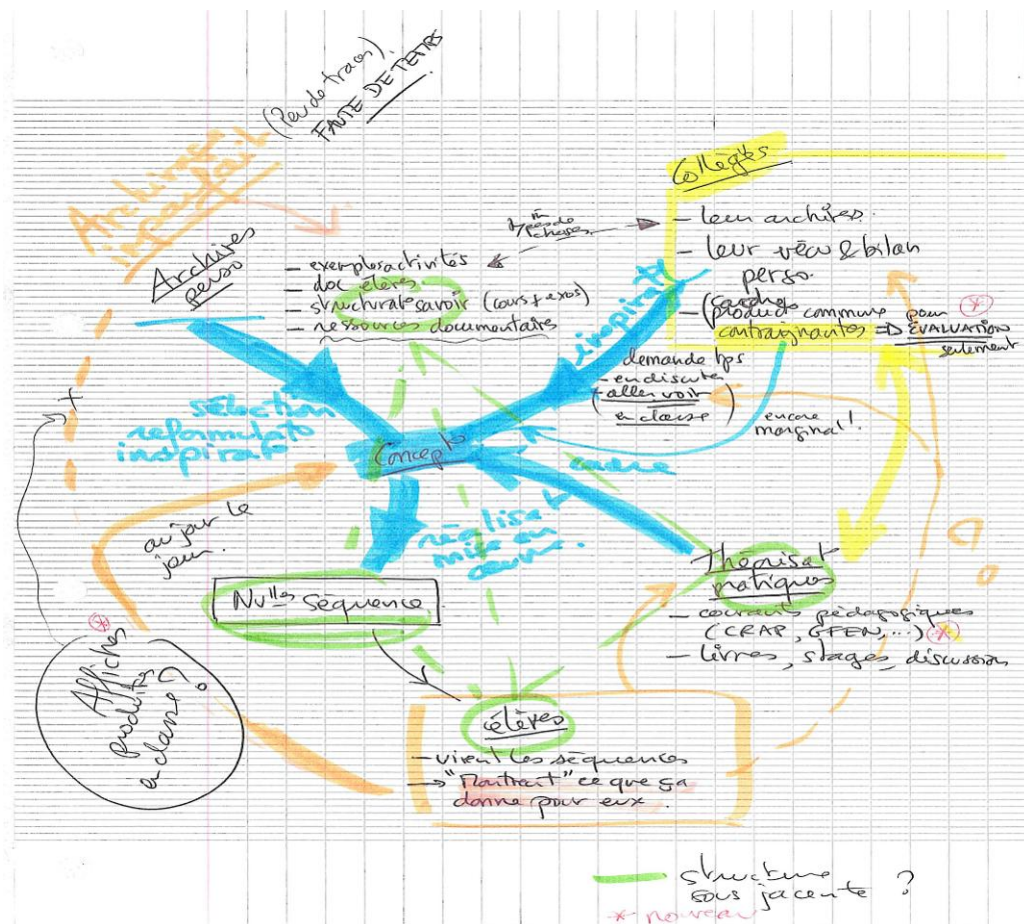 (Peu de traces)
FAUTE DE TEMPS
Archivage
imparfait
Archives
perso
- exemples activités
- doc élèves
- structurat° savoir (cours + exos)
- ressources documentaires
m̂
types de
choses
Collègues
- leurs archives.
- leur vécu & bilan
perso.
- product° commune pour *
contraignantes => EVALUATION
seulement
inspirat°
demande tps
- en discuter
+ aller voir
en classe
encore
marginal!
sélection
reformulat°
inspirat°
Concept°
cadre
au jour le
jour.
réalisat°
mise en
œuvre.
Nv^lles séquence
Théorisat°
pratiques
- courants pédagogiques
(CRAP, GFEN, ...) *
- livres, stages, discussion
+
*
Affiches
produites
en classe ?
élèves
- vivent les séquences
-> "Montrent" ce que ça
donne pour eux.
structure
sous jacente ?
* nouveau